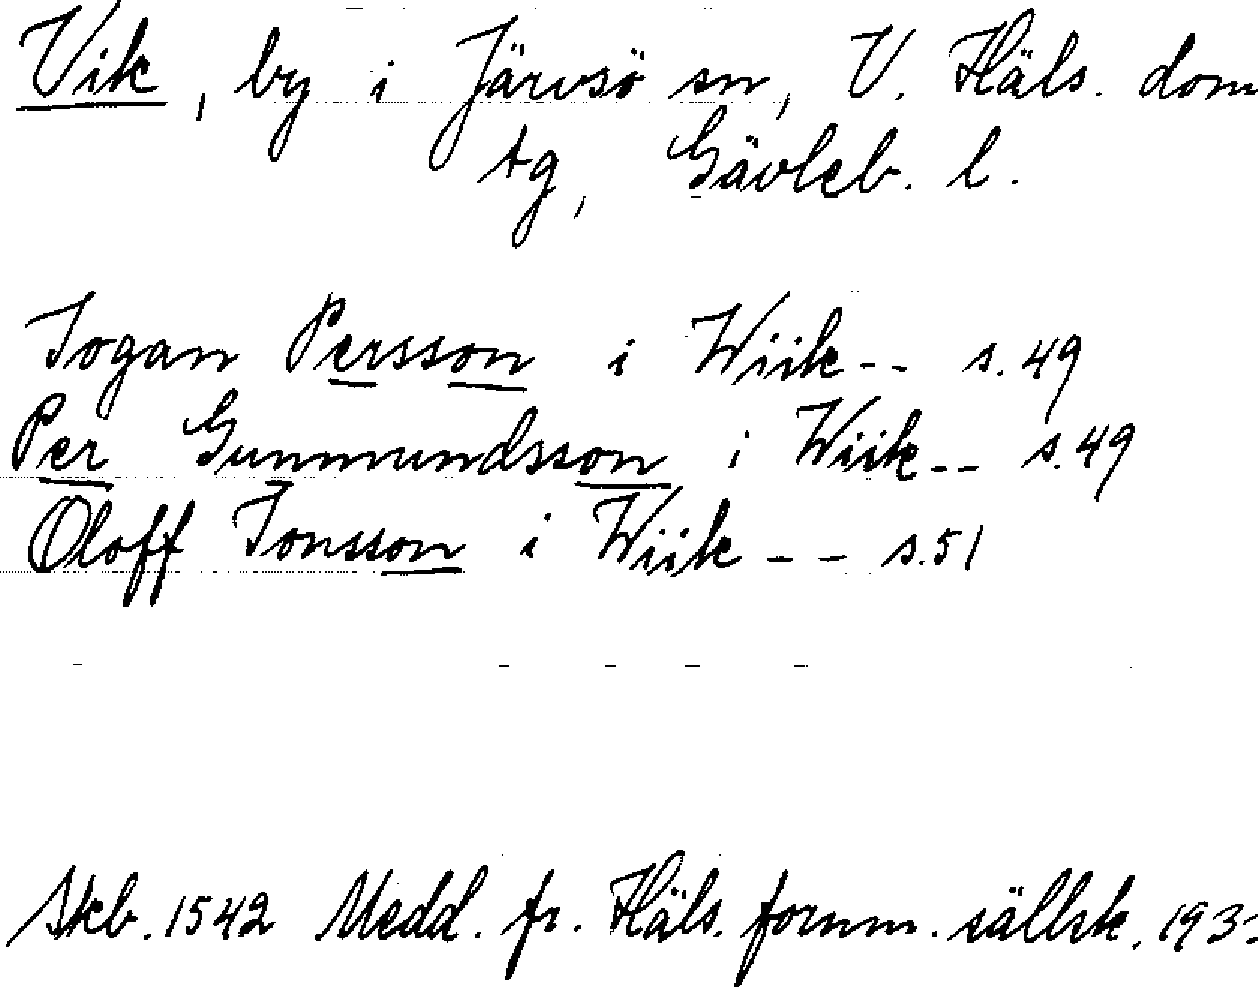 Vik, by i Järvsö sn, V. Häls. dom
tg, Gävleb. l.
Jogan Persson i Wiik-- s. 49
Per Gunmundsson i Wiik-- s. 49
Oloff Jonsson i Wiik -- s. 51
Skb. 1542 Medd. fr. Häls. fornm. sällsk.